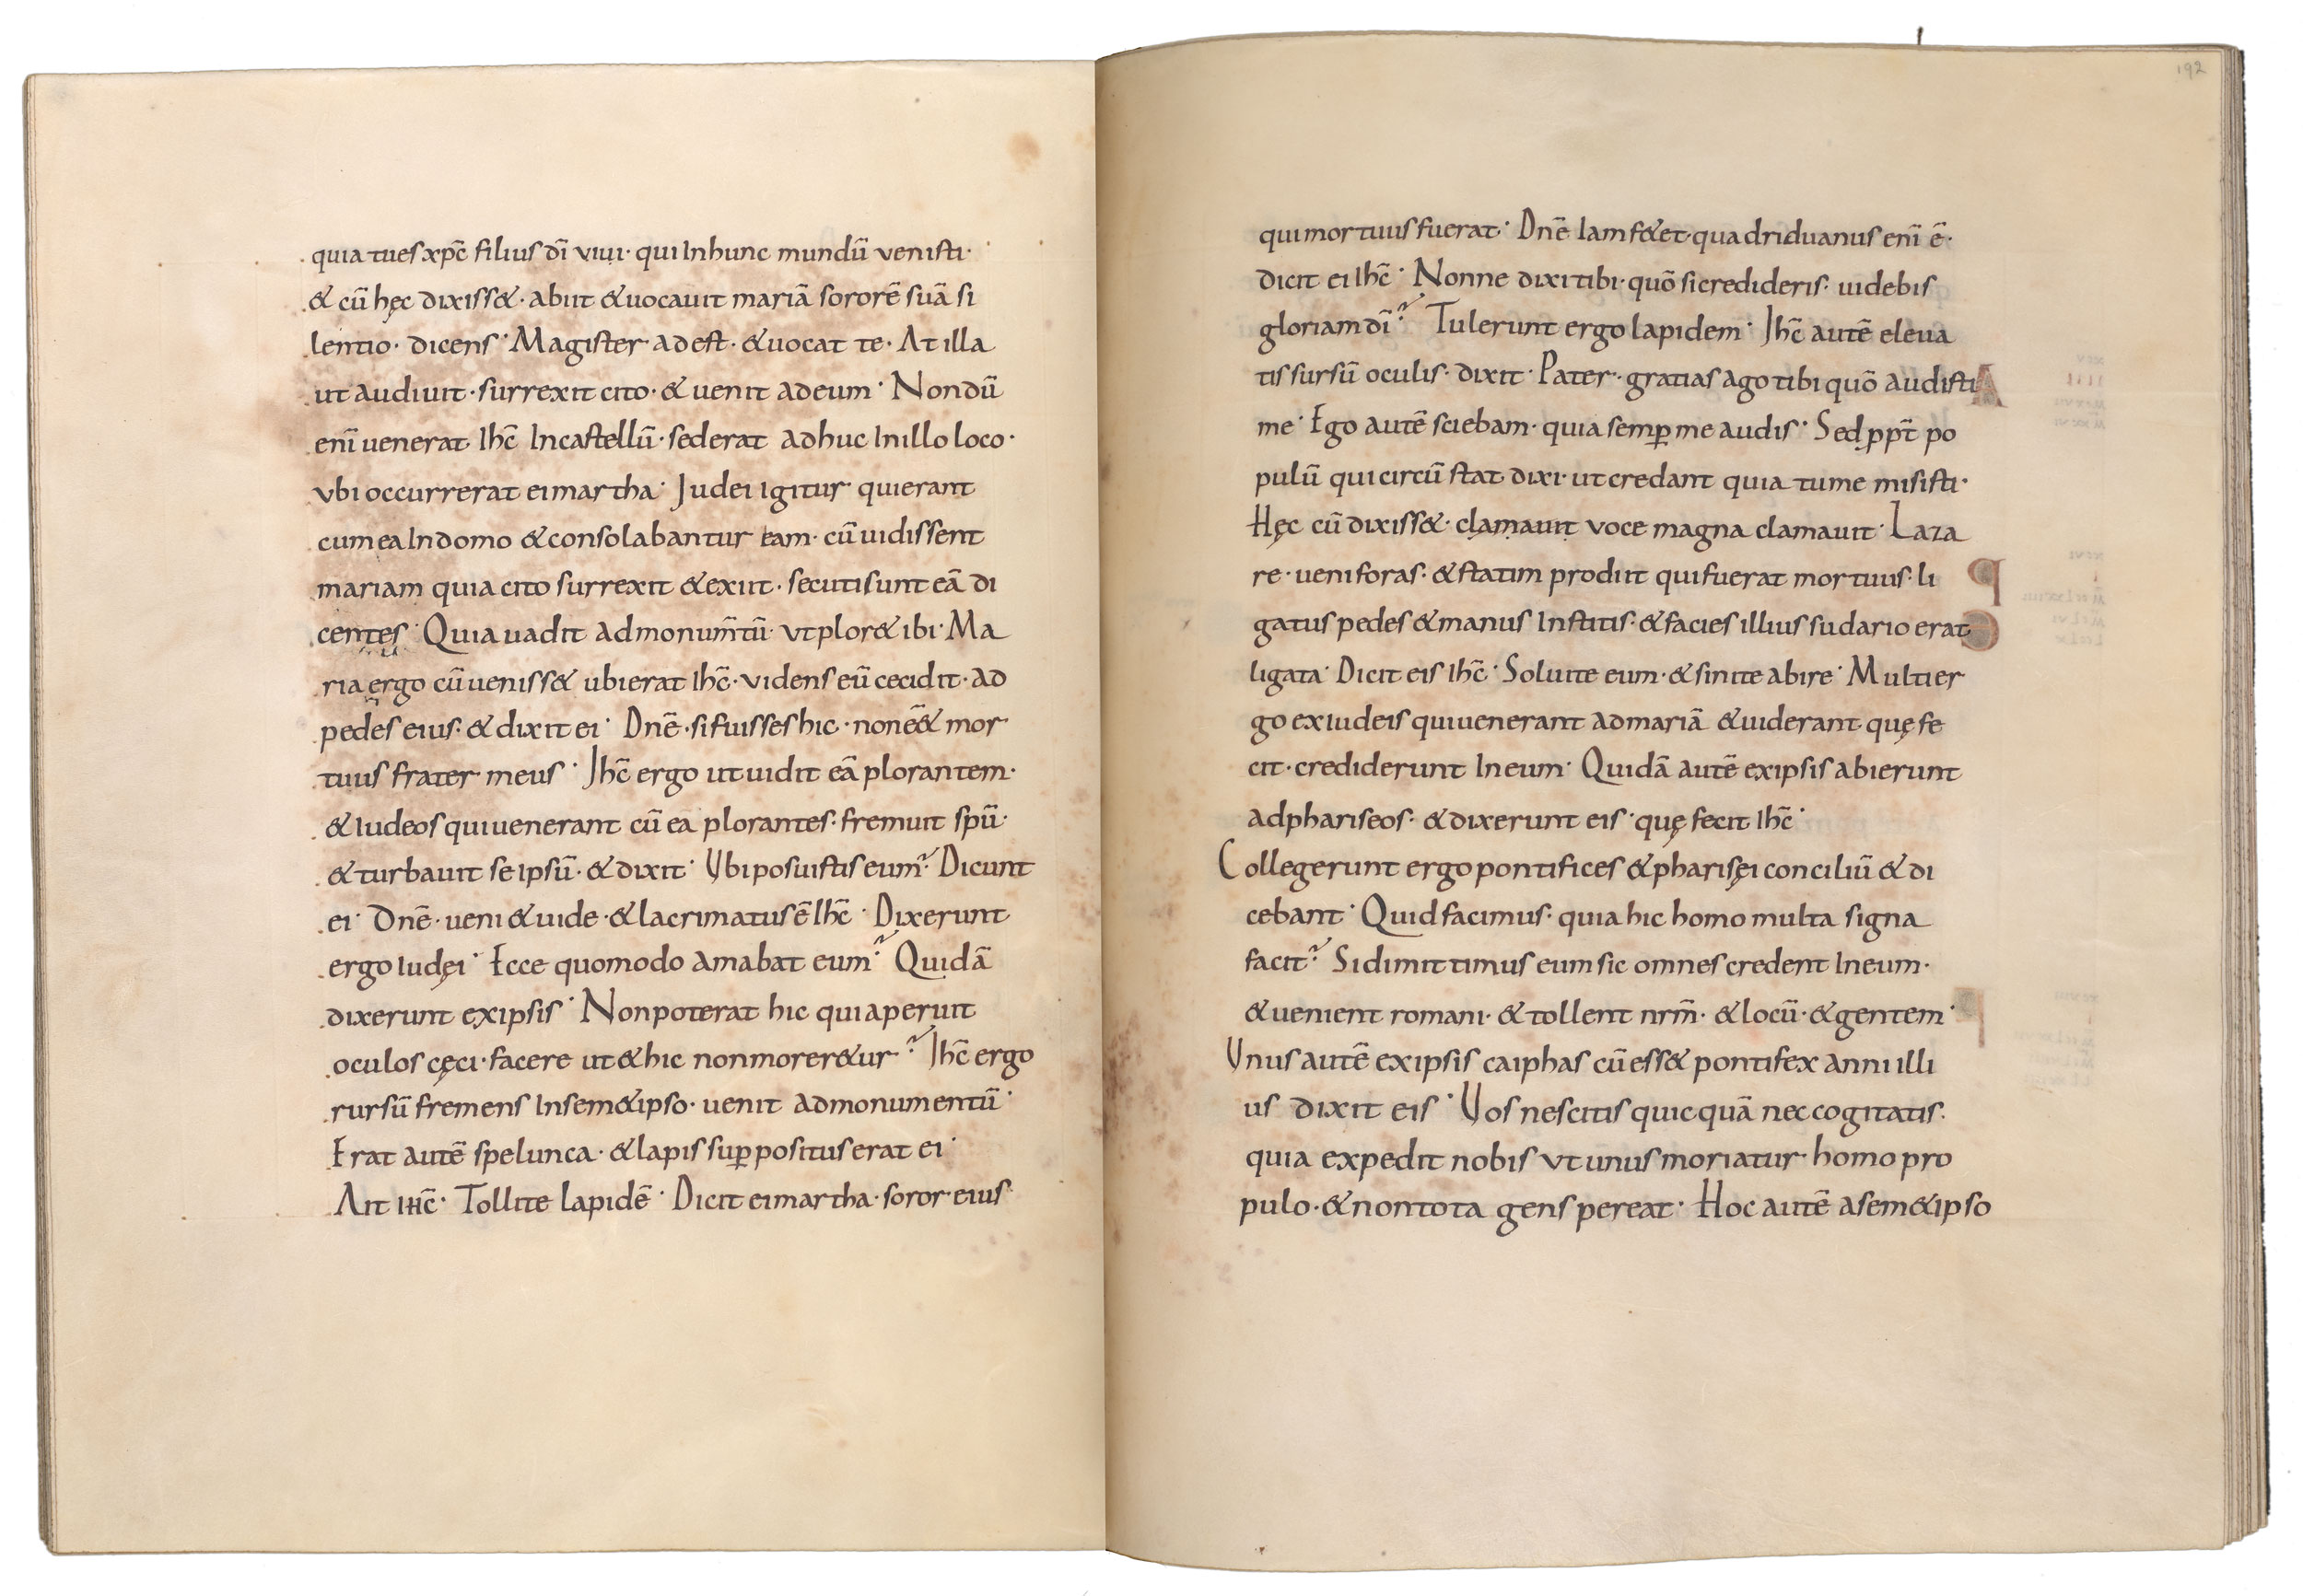 quia tu es xp̄c filius dī vivi· qui In hunc mundū venisti·
& cū hęc dixiss&· abiit & vocavit mariā sororē suā si
lentio· dicens· Magister adest· & vocat te· At illa
ut audivit· surrexit cito· & venit ad eum· Nondū
enī venerat Ihc̄ In castellū· sed erat adhuc In illo loco·
ubi occurrerat ei martha· Judei igitur qui erant
cum ea In domo & consolabantur eam· cū vidissent
mariam quia cito surrexit & exiit· secuti sunt eā di
centes· Quia vadit ad monum̄tū· ut plor& ibi· Ma
ria ergo cū veniss& ubi erat Ihc̄· videns eū cecidit· ad
pedes eius· & dixit ei· Dn̄e· si fuisses hic· non ēē& mor
tuus frater meus· Jhc̄ ergo ut vidit eā plorantem·
& iudeos qui venerant cū ea plorantes· fremuit spū·
& turbavit se ipsū· & dixit· Ubi posuistis eum? Dicunt
ei· Dn̄e· veni & vide· & lacrimatus ē Ihc̄· Dixerunt
ergo iudęi· Ecce quomodo amabat eum? Quidā
dixerunt ex ipsis· Non poterat hic qui aperuit
oculos cęci· facere ut & hic non morer&ur? Jhc̄ ergo
rursū fremens In sem&ipso· venit ad monumentū·
Erat autē spelunca· & lapis suꝑpositus erat ei·
Ait ihc̄· Tollite lapidē· Dicit ei martha· soror eius·
192
qui mortuus fuerat· Dn̄e Iam f&et· quadriduanus enī ē·
dicit ei Ihc̄· Nonne dixi tibi· quō si credideris· videbis
gloriam dī? Tulerunt ergo lapidem· Jhc̄ autē eleva
tis sursū oculis· dixit· Pater· gratias ago tibi quō audisti
me· Ego autē sciebam· quia semꝑ me audis· Sed ppt̄ po
pulū qui circū stat dixi· ut credant quia tu me misisti·
Hęc cū dixiss&· clamavit voce magna clamavit· Laza
re· veni foras· & statim prodiit qui fuerat mortuus· li
gatus pedes & manus Institis· & facies illius sudario erat
ligata· Dicit eis Ihc̄· Solvite eum· & sinite abire· Multi er
go ex iudeis qui venerant ad mariā & viderant quę fe
cit· crediderunt In eum· Quidā autē ex ipsis abierunt
ad phariseos· & dixerunt eis· quę fecit Ihc̄·
Collegerunt ergo pontifices & pharisęi conciliū & di
cebant· Quid facimus· quia hic homo multa signa
facit? Si dimittimus eum sic omnes credent In eum·
& venient romani· & tollent nrm̄· & locū· & gentem·
Unus autē ex ipsis caiphas cū ess& pontifex anni illi
us dixit eis· Vos nescitis quicquā nec cogitatis·
quia expedit nobis ut unus moriatur homo pro
pulo· & non tota gens pereat· Hoc autē a sem&ipso